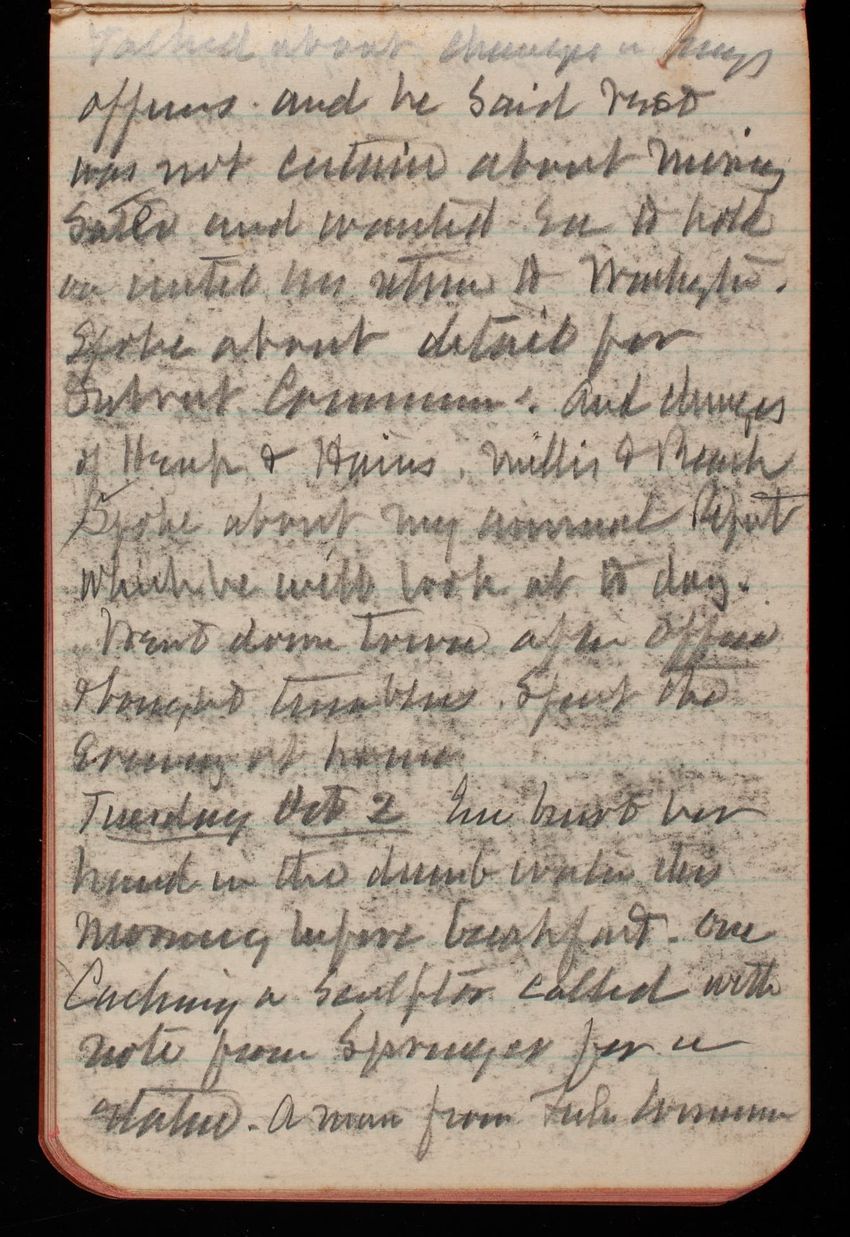 Talked about changes in
offices. and he said Root
was not certain about moving
and wanted to hold
on until his return to Washington.
Spoke about detail for
Detroit Commn. and changes
of Heap & Hains, Millis & Roach
Spoke about my annual Report
which he will look at to day.
Went down town after office
& bought tumblers. Spent the
Evening at home
Tuesday Oct 2 Em hurt her
hand in the dumb waiter this
Morning before breakfast. One
a Sculptor called with
note from Springer for a
statue. A man from